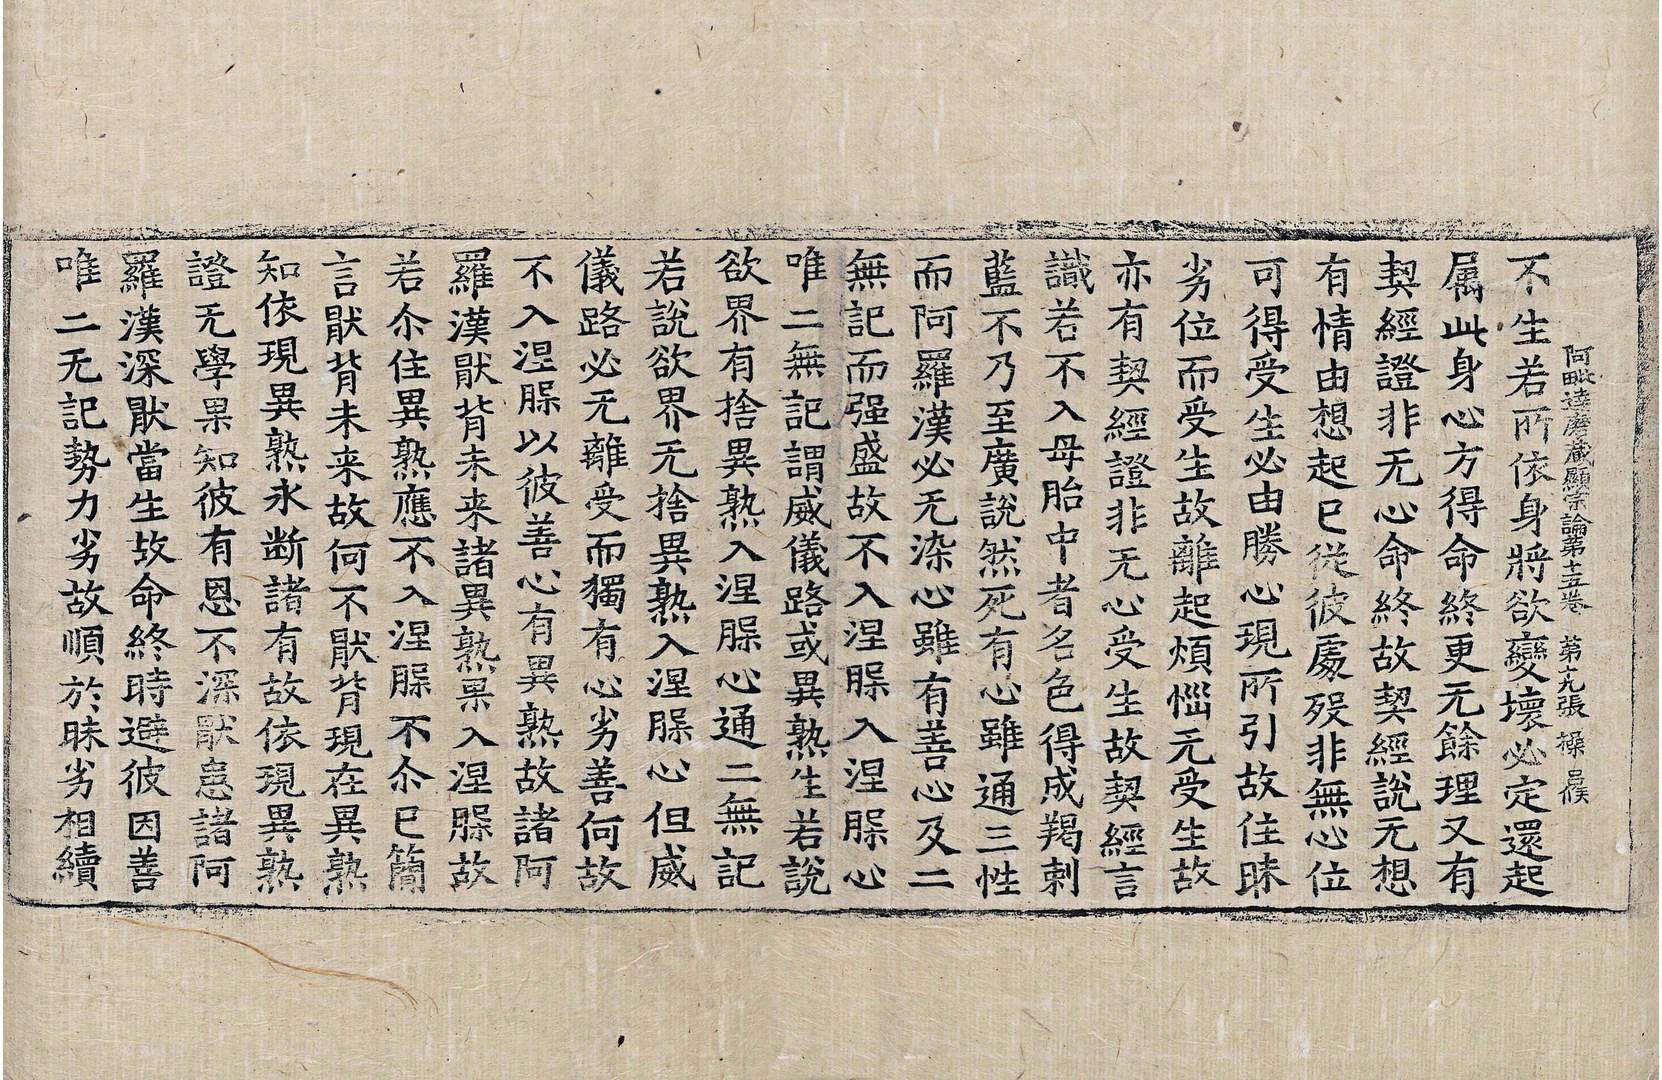 阿毗達磨藏顯宗論第十五卷 第十九張 操
不生若所依身將欲變壞必定還起
属此身心方得命終更无餘理又有
契經證非无心命終故契經說无想
有情由想起已從彼處殁非無心位
可得受生必由勝心現所引故住昧
劣位而受生故離起煩惱无受生故
亦有契經證非无心受生故契經言
識若不入母胎中者名色得成羯剌
藍不乃至廣說然死有心雖通三性
而阿羅漢必无染心雖有善心及二
無記而强盛故不入涅腂入涅腂心
唯二無記謂威儀路或異熟生若說
欲界有捨異熟入涅腂心通二無記
若說欲界无捨異熟入涅腂心但威
儀路必无離受而獨有心劣善何故
不入涅腂以彼善心有異熟故諸阿
羅漢猒背未来諸異熟果入涅腂故
若尒住異熟應不入涅腂不尒已簡
言猒背未来故何不猒背現在異熟
知依現異熟永断諸有故依現異熟
證无學果知彼有恩不深猒患諸阿
羅漢深猒當生故命終時避彼因善
唯二无記勢力劣故順於昧劣相續